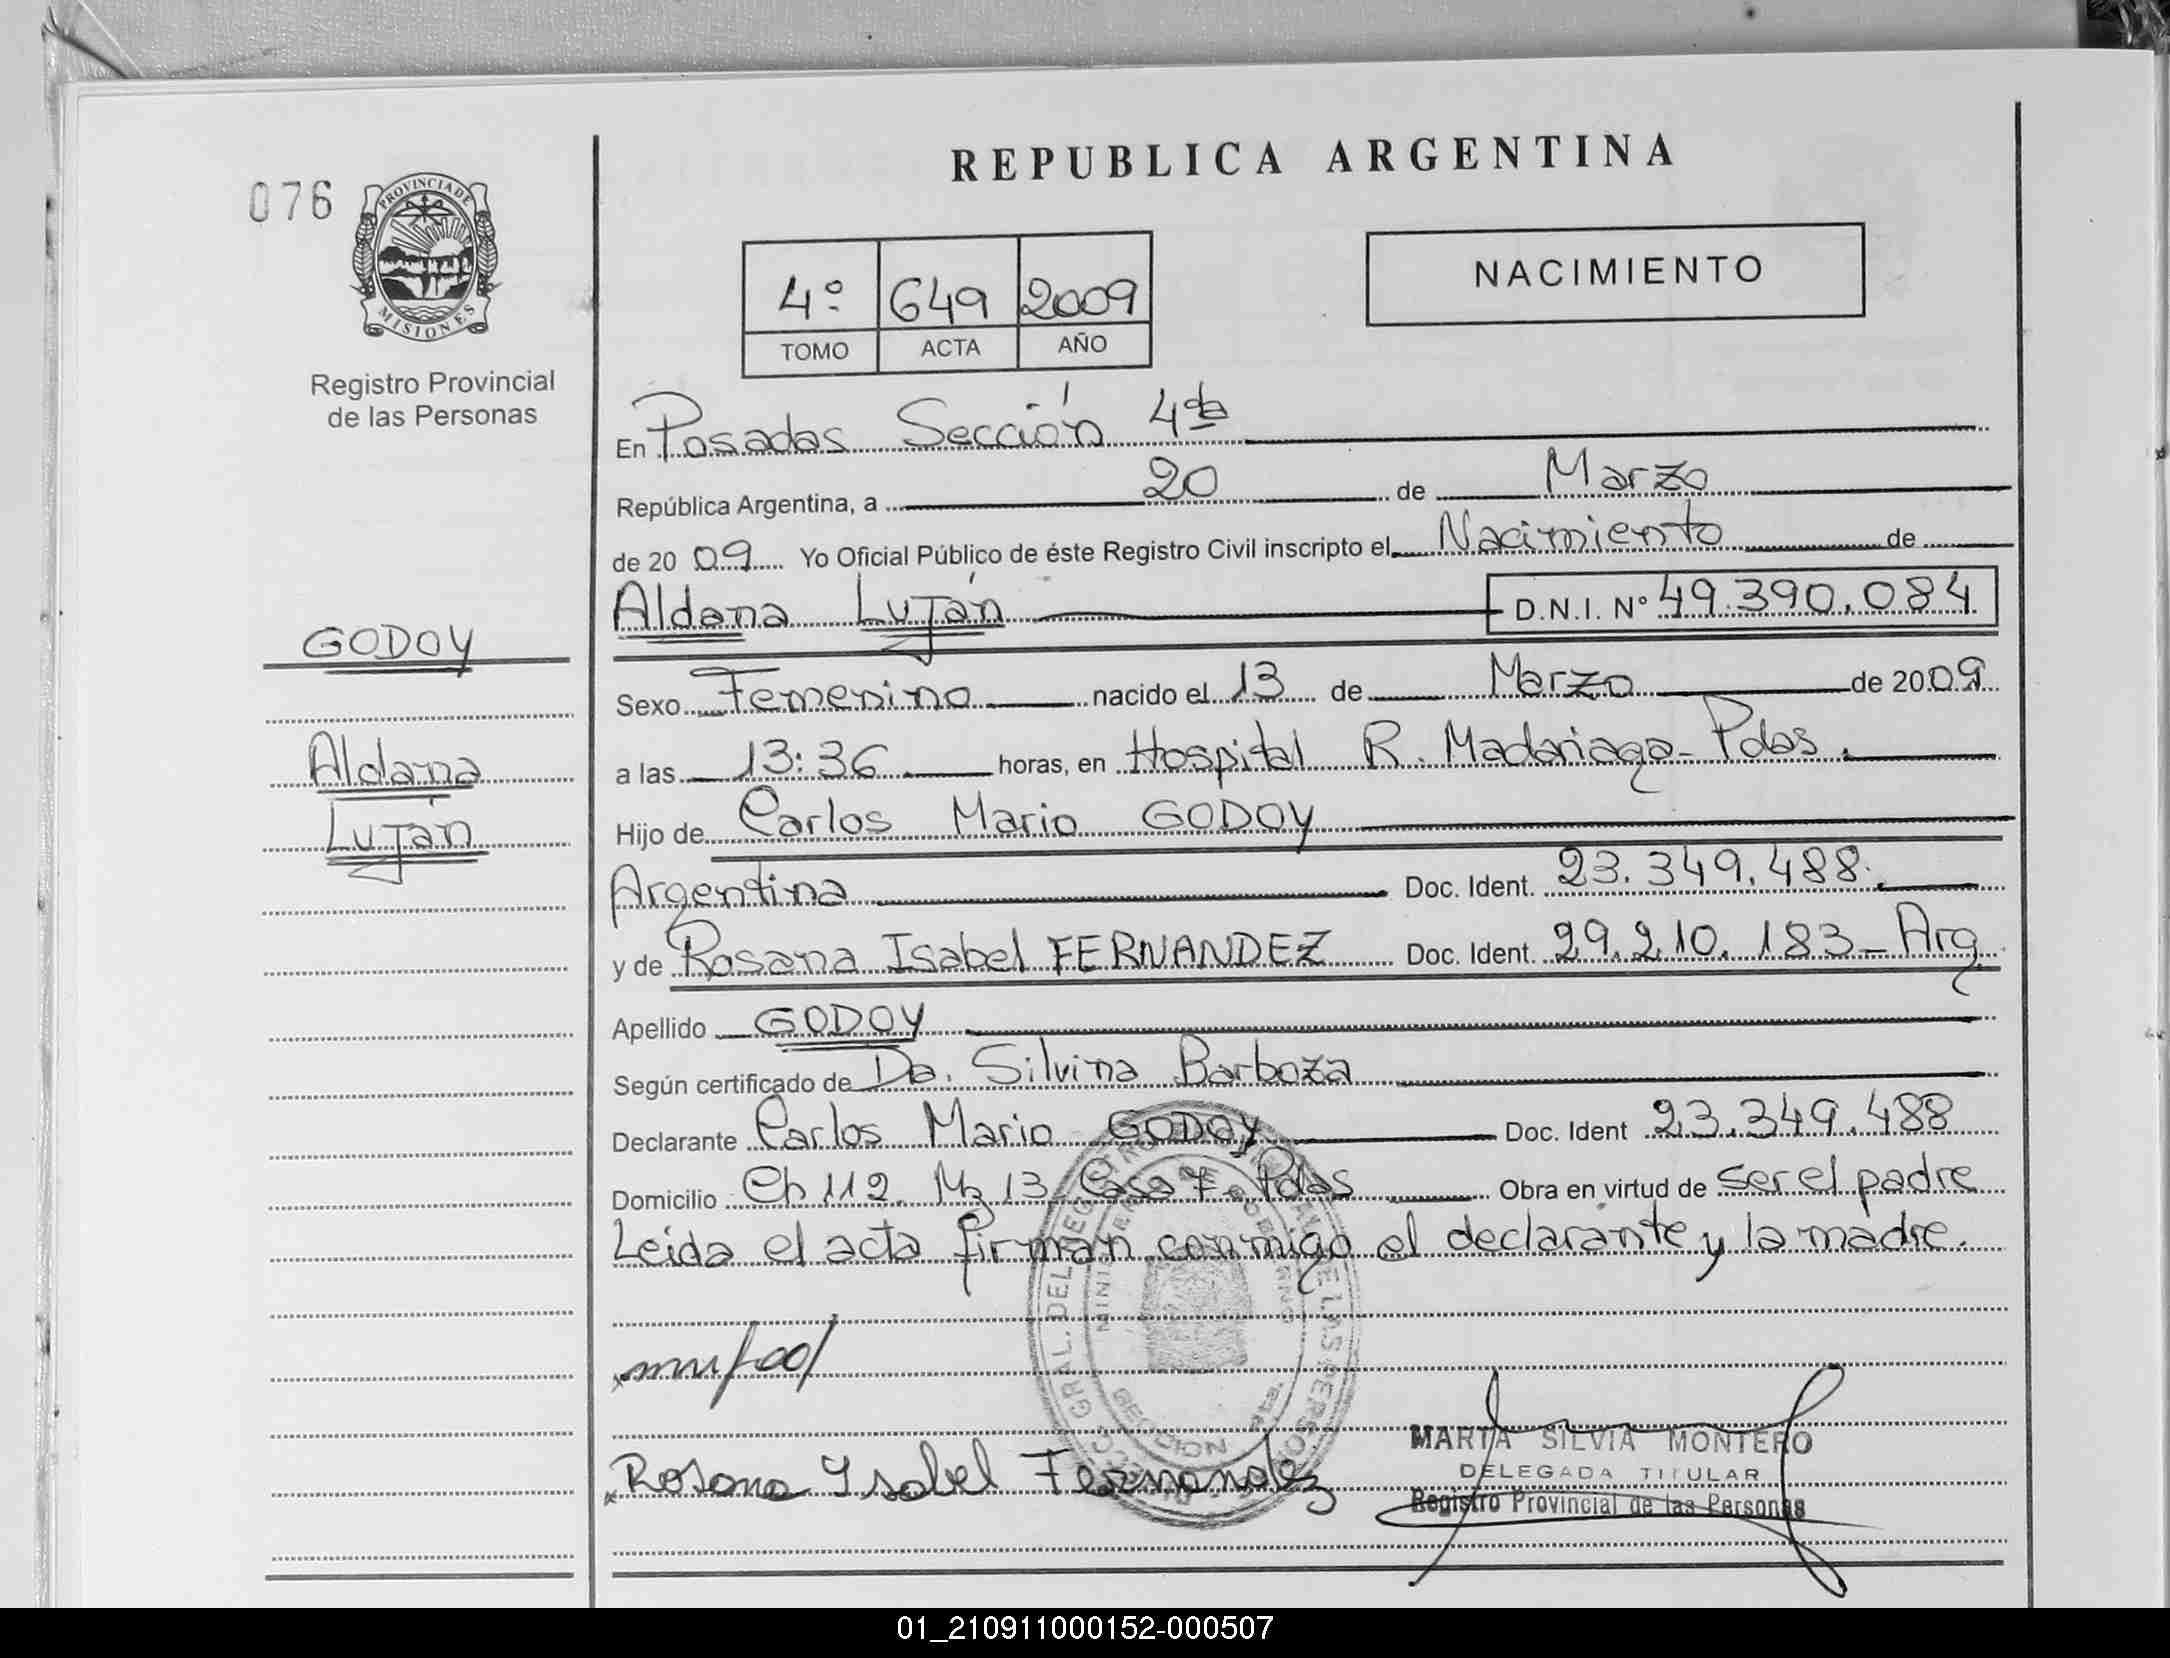 REPUBLICA ARGENTINA
076
PROVINCIA DE
MISIONES
Registro Provincial
de las Personas
NACIMIENTO
4º 649 2009
TOMO ACTA AÑO
En Posadas Sección 4ta
República Argentina, a 20 de Marzo
de 2009 Yo Oficial Público de éste Registro Civil inscripto el Nacimiento de
Aldana Luján D.N.I. Nº 49.390.084
GODOY
Aldana
Luján
Sexo Femenino nacido el 13 de Marzo de 2009
a las 13:36 horas, en Hospital R. Madariaga - Pdas.
Hijo de Carlos Mario GODOY
Argentina Doc. Ident. 23.349.488.
y de Rosana Isabel FERNANDEZ Doc. Ident. 29.210.183 - Arg.
Apellido GODOY
Según certificado de Da. Silvina Barboza
Declarante Carlos Mario GODOY Doc. Ident 23.349.488
Domicilio Ch 112. Mz 13 Casa 7 - Pdas Obra en virtud de ser el padre
Leida el acta firman conmigo el declarante y la madre.
Rosana Ysabel Fernandez
MARTA SILVIA MONTERO
DELEGADA TITULAR
Registro Provincial de las Personas
01_210911000152-000507